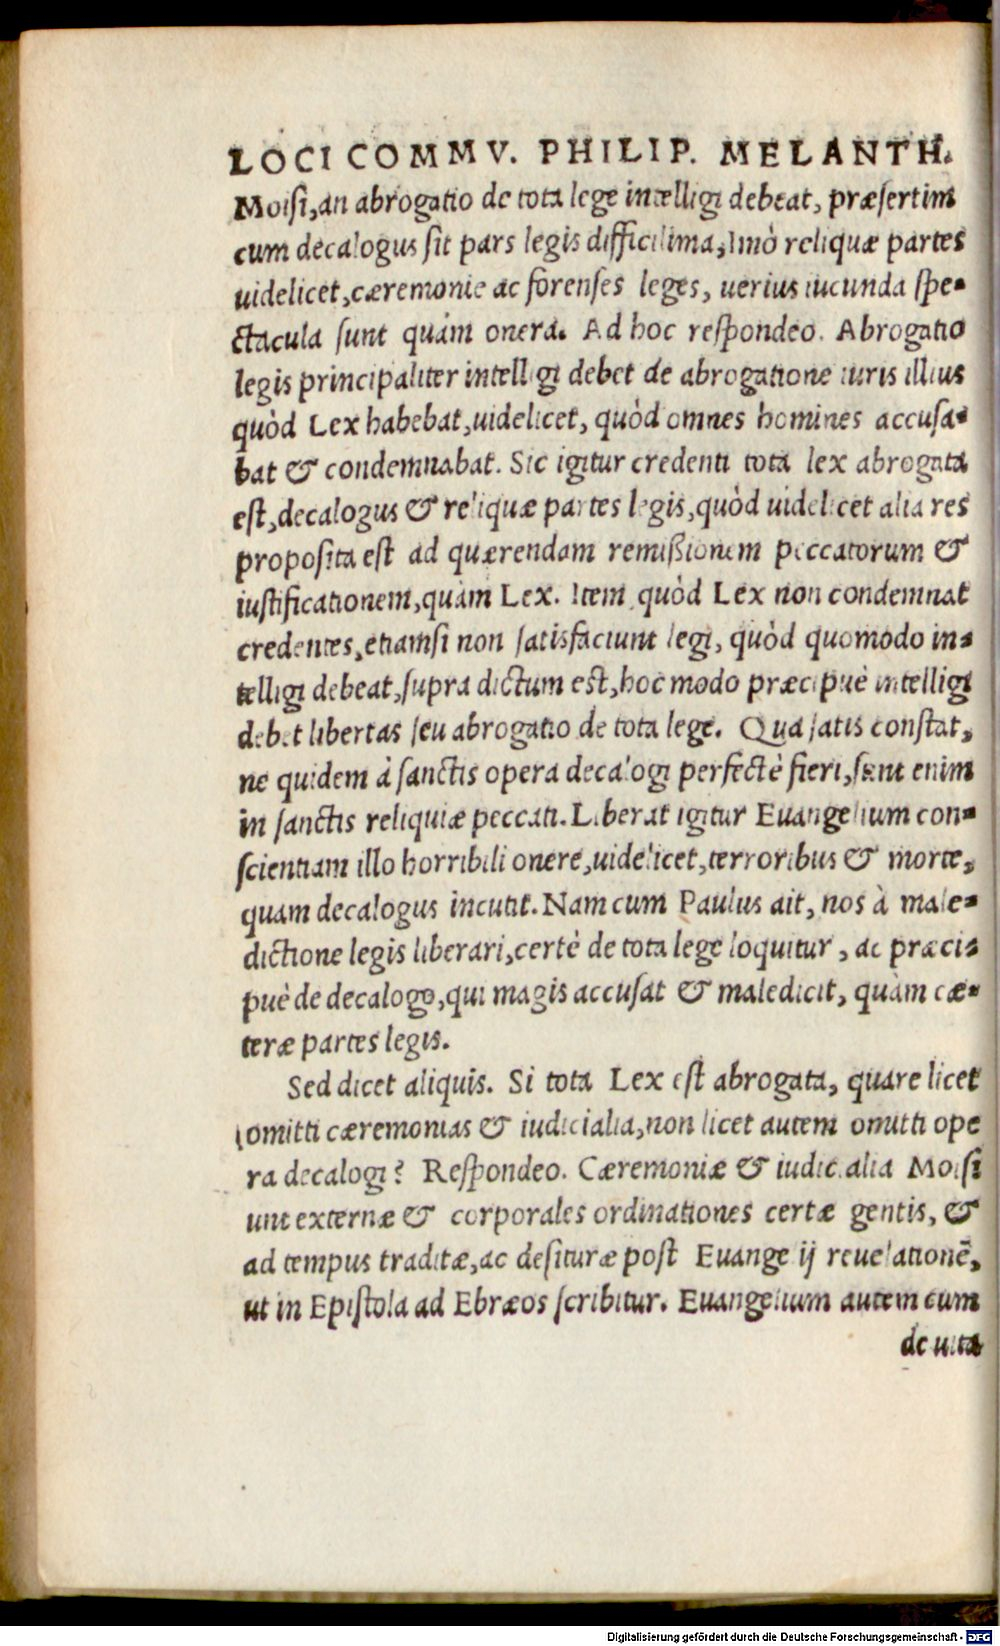 LOCI COMMV. PHILIP. MELANTH.
Moisi, an abrogatio de tota lege intelligi debeat, præsertim
cum decalogus sit pars legis difficilima, Imò reliquæ partes
uidelicet, cæremonie ac forenses leges, uerius iucunda spe-
ctacula sunt quàm onera. Ad hoc respondeo. Abrogatio
legis principaliter intelligi debet de abrogatione iuris illius
quòd Lex habebat, uidelicet, quòd omnes homines accusa-
bat & condemnabat. Sic igitur credenti tota lex abrogata
est, decalogus & reliquæ partes legis, quòd uidelicet alia res
proposita est ad quærendam remißionem peccatorum &
iustificationem, quàm Lex. Item quòd Lex non condemnat
credentes, etiamsi non satisfaciunt legi, quòd quomodo in-
telligi debeat, supra dictum est, hoc modo præcipuè intelligi
debet libertas seu abrogatio de tota lege. Quia satis constat,
ne quidem à sanctis opera decalogi perfectè fieri, sunt enim
in sanctis reliquiæ peccati. Liberat igitur Euangelium con-
scientiam illo horribili onere, uidelicet, terroribus & morte,
quam decalogus incutit. Nam cum Paulus ait, nos à male-
dictione legis liberari, certè de tota lege loquitur, ac præci-
puè de decalogo, qui magis accusat & maledicit, quàm cæ-
teræ partes legis.
Sed dicet aliquis. Si tota Lex est abrogata, quare licet
omitti cæremonias & iudicialia, non licet autem omitti ope
ra decalogi? Respondeo. Cæremoniæ & iudicialia Moisi
unt externæ & corporales ordinationes certæ gentis, &
ad tempus traditæ, ac desituræ post Euangelij reuelationē,
ut in Epistola ad Ebræos scribitur. Euangelium autem cum
de uita
Digitalisierung gefördert durch die Deutsche Forschungsgemeinschaft - DFG